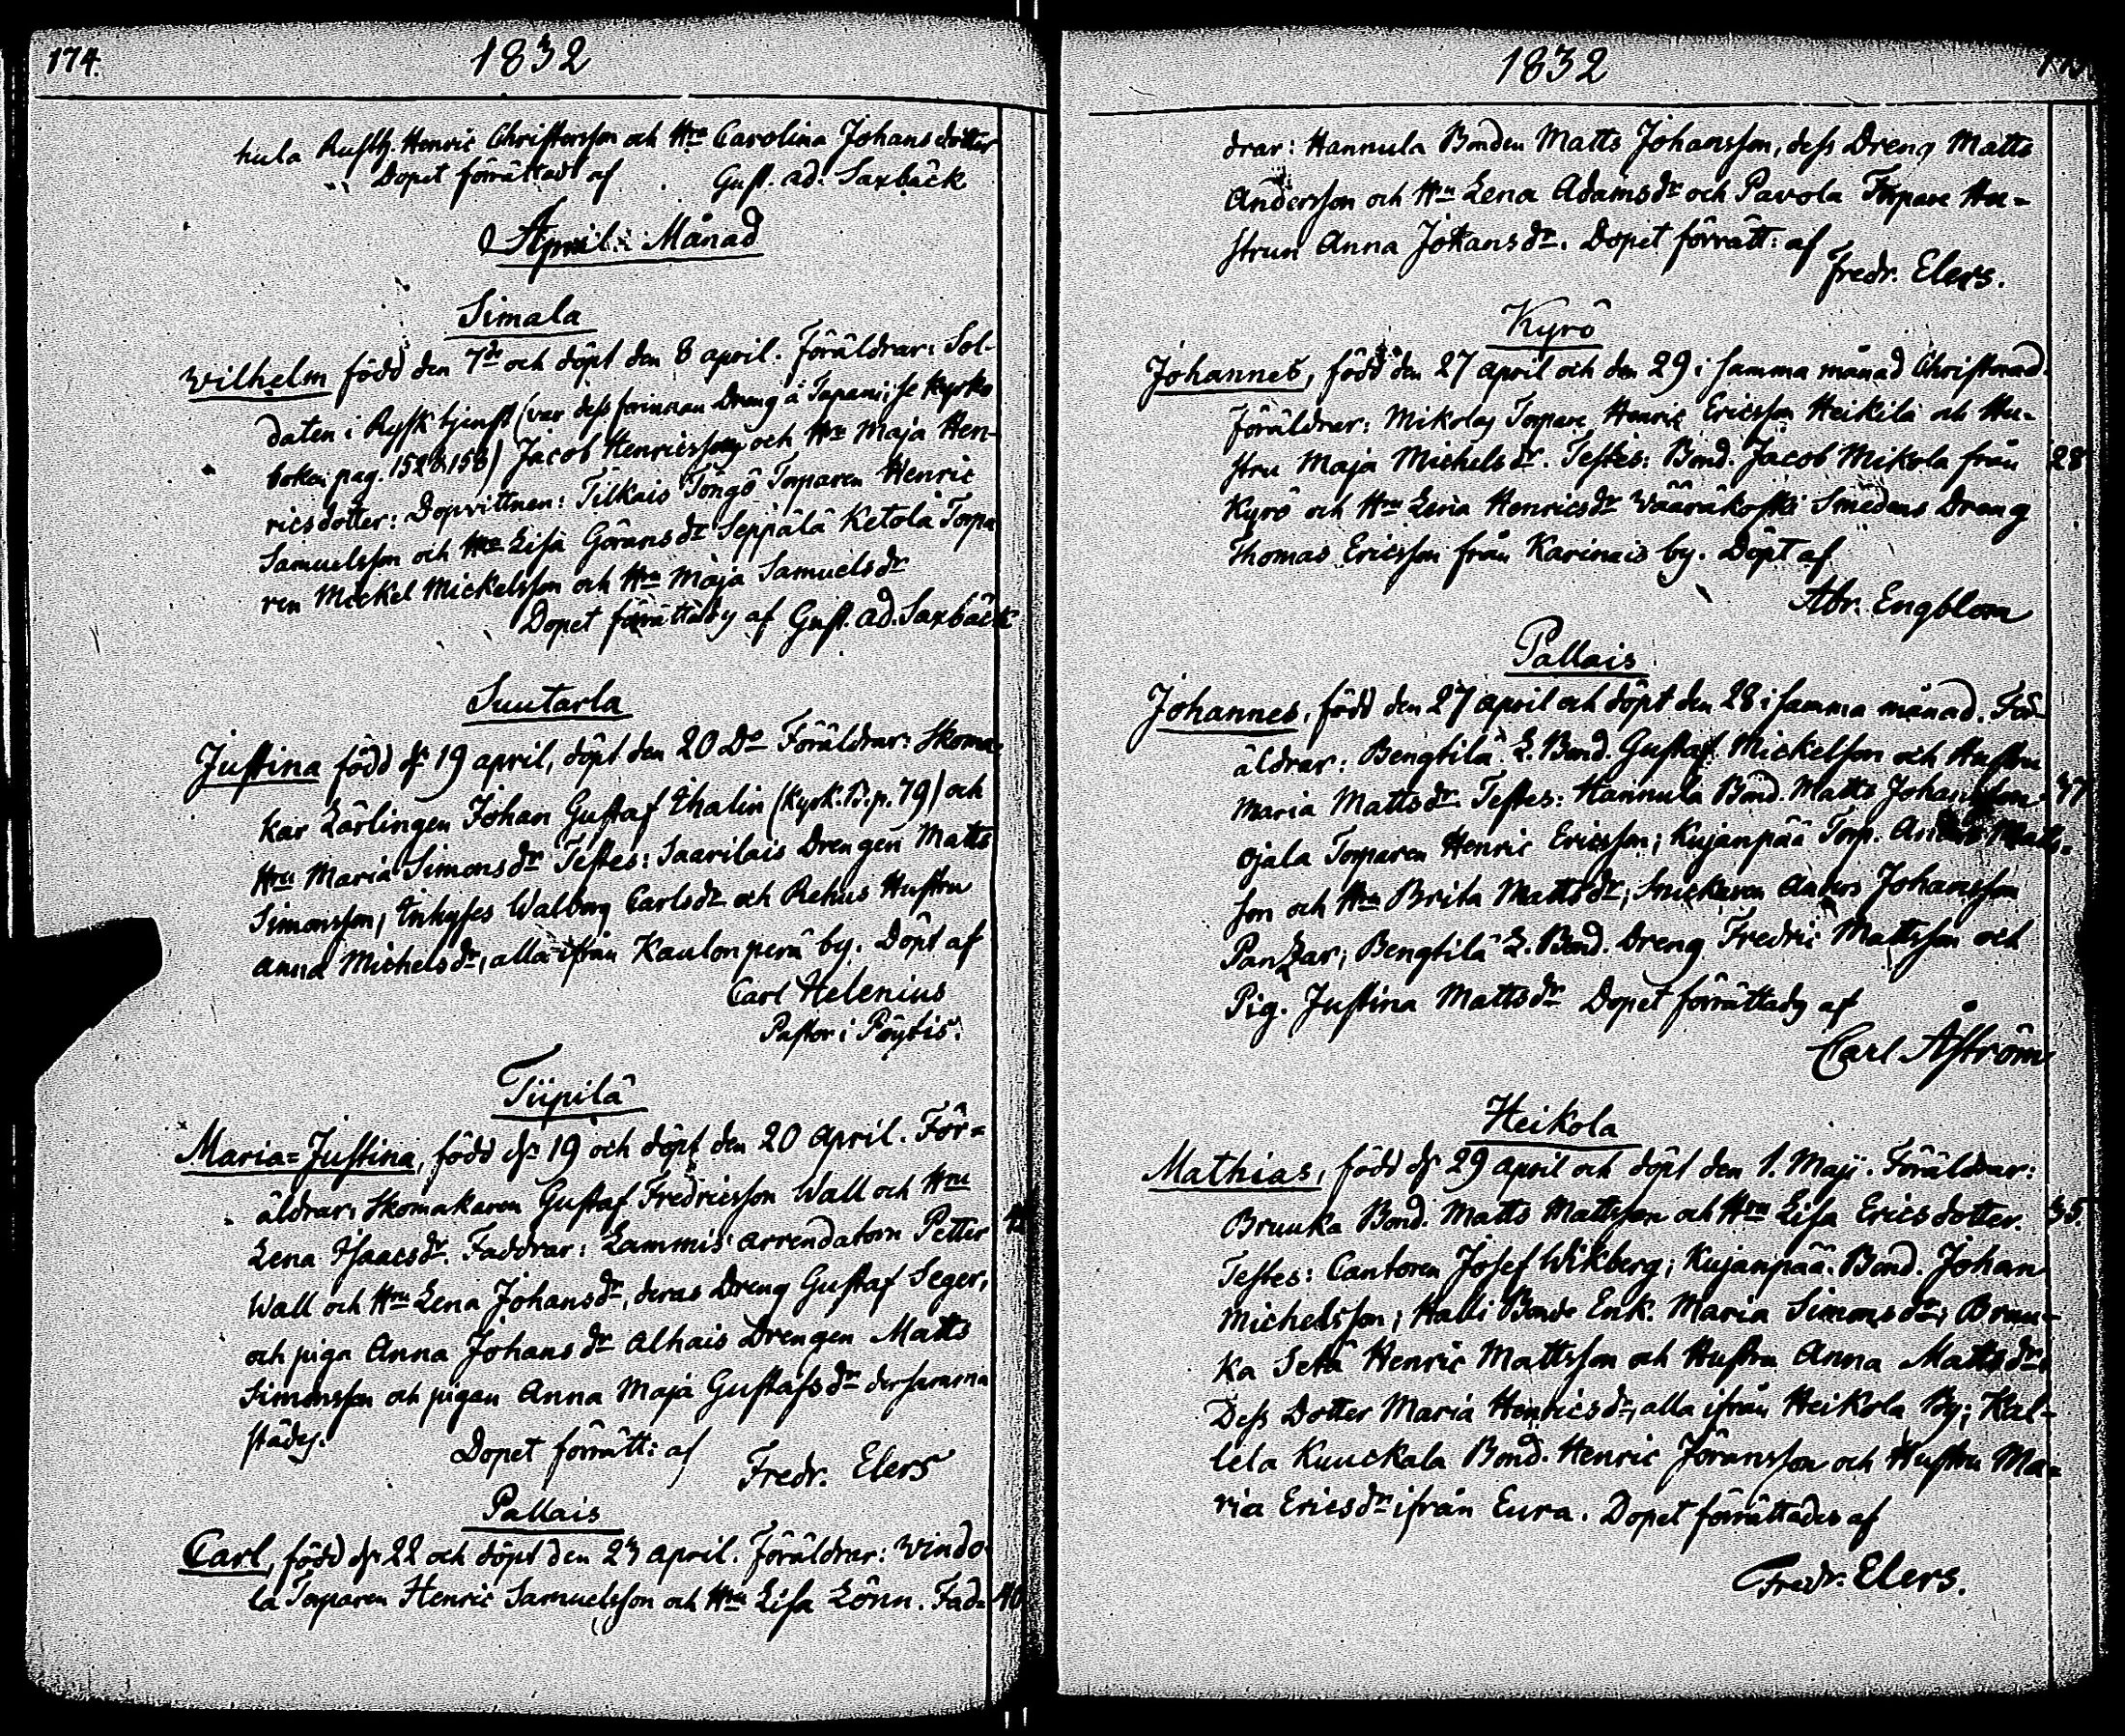 174.
1832
hula Rusth. Henric Christersson och Hru Carolina Johansdotter
Dopet förrättadt af Gust. ad. Saxbäck
April Månad
Simala
Wilhelm född den 7de och döpt den 8 april. Föräldrar: Sol-
daten i Rysk tjenst (var dess förinnan Dreng å Tapani; se Kyrko
boken pag. 152 & 158) Jacob Henricsson och Hru Maja Hen-
ricsdotter: Dopvittnen: Tilkais Töngö Torparen Henric
Samuelsson och Hru Lisa Göransdr Seppälä Ketola Torpa
ren Mickel Mickelsson och Hru Maja Samuelsdr
Dopet förrättades af Gust. ad. Saxbäck
Suutarla
Justina född d. 19 april, döpt den 20 Do Föräldrar: Skoma-
kar Lärlingen Johan Gustaf Thalin (Kyrk. B. p. 79) och
Hru Maria Simonsdr Testes: Saarilais Drengen Matts
Simonsson, Inhyses Walborg Carlsdr och Rehus Hustru
Anna Michelsdr, alla ifrån Kaulonperä by. Döpt af
Carl Helenius
Pastor i Pöytis.
Tiipilä
Maria=Justina, född d. 19 och döpt den 20 April. För=
äldrar: Skomakaren Gustaf Fredricsson Wall och Hru
Lena Isaacsdr. Faddrar: Lammis arrendatorn Petter
Wall och Hru Lena Johansdr, deras Dreng Gustaf Seger,
och piga Anna Johansdr Alhais Drengen Matts
Simonsson och pigan Anna Maja Gustafsdr dersamma
städes. Dopet förrätt: af
Fredr. Elers
Pallais
Carl, född d. 22 och döpt den 23 april. Föräldrar: Windo-
la Torparen Henric Samuelsson och Hru Lisa Lönn. Fad= 40
1832
drar: Hannula Bonden Matts Johansson, dess Dreng Matts
Andersson och Hru Lena Adamsdr och Pavola Torpare Hu=
strun Anna Johansdr. Dopet förrätt: af
Fredr. Elers.
Kyrö
Johannes, född den 27 april och den 29 i samma månad Christnad.
Föräldrar: Mikolas Torpare Henric Ericsson Heikilä och Hu-
stru Maja Michelsdr. Testes: Bond. Jacob Mikola från 28
Kyrö och Hru Lena Henricsdr Wääräkoski Smedens Dreng
Thomas Ericsson från Karinais by. Döpt af
Abr. Engblom
Pallais
Johannes, född den 27 april och döpt den 28 i samma månad. För-
äldrar: Bengtilä L. Bond. Gustaf Mickelson och Hustru
Maria Mattsdr. Testes: Hannula Bond. Matts Johansson 37
Ojala Torparen Henric Ericsson; Kujanpää Torp. Anders Matts-
son och Hru Brita Mattsdr; Snickaren Anders Johansson
Panzar; Bengtilä L. Bond. Dreng Fredric Mattsson och
Pig. Justina Mattsdr Dopet förrättades af
Carl Åström
Heikola
Mathias, född d. 29 april och döpt den 1. Maji. Föräldrar:
Bruuka Bond. Matts Mattsson och Hru Lisa Ericsdotter. 35.
Testes: Cantoren Josef Wikberg; Kujanpää Bond. Johan
Michelsson; Halli Bonde Enk. Maria Simonsdr; Bruu-
ka Setä Henric Mattsson och Hustru Anna Mattsdr,
Dess Dotter Maria Henricsdr, alla ifrån Heikola By; Kal-
lela Kuuckala Bond. Henric Jöransson och Hustru Ma=
ria Ericsdr ifrån Eura. Dopet förrättades af
Fredr. Elers.